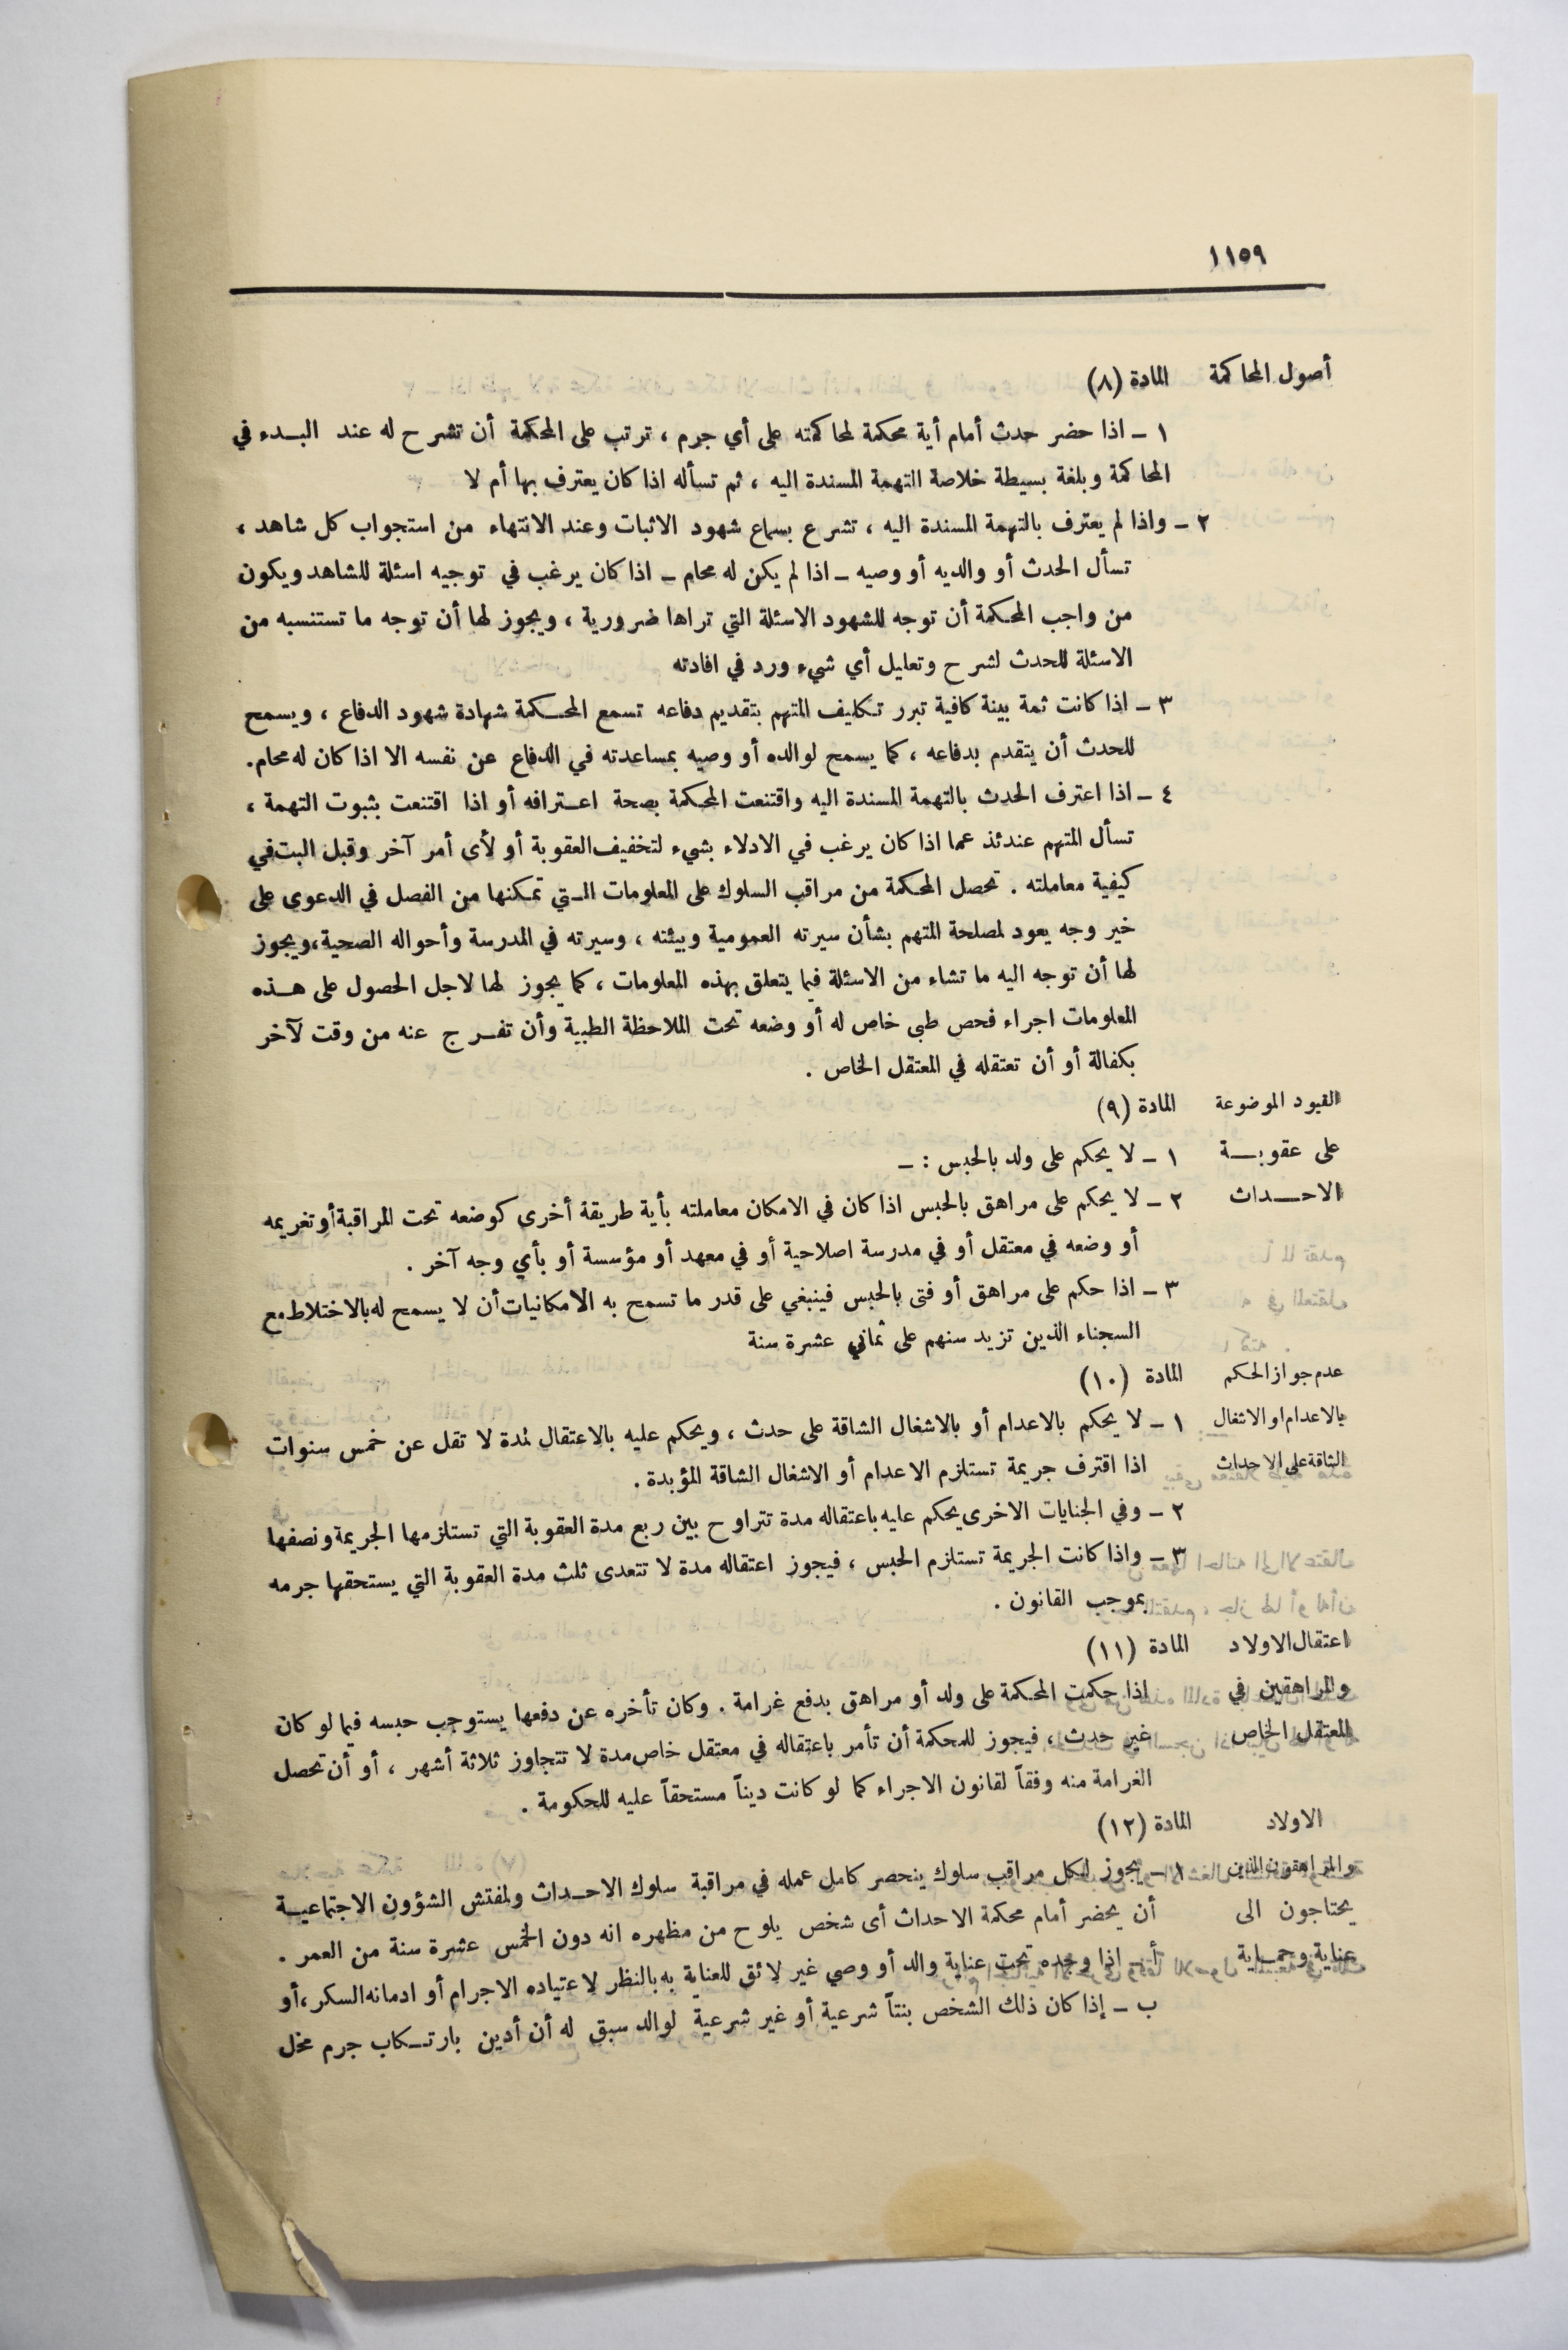 ١١٥٩
أصول المحاكمة المادة (٨)
١ – اذا حضر حدث أمام أية محكمة لمحاكمته على أي جرم ، ترتب على المحكمة أن تشرح له عند البـدء في
المحاكمة وبلغة بسيطة خلاصة التهمة المسندة اليه ، ثم تسأله اذا كان يعترف بها أم لا
٢ – واذا لم يعترف بالتهمة المسندة اليه ، تشرع بسماع شهود الاثبات وعند الانتهاء من استجواب كل شاهد ،
تسأل الحدث أو والديه أو وصيه – اذا لم يكن له محام – اذا كان يرغب في توجيه اسئلة للشاهد ويكون
من واجب المحكمة أن توجه للشهود الاسئلة التي تراها ضرورية ، ويجوز لها أن توجه ما تستنسبه من
الاسئلة للحدث لشرح وتعليل أي شيء ورد في افادته
٣ – اذا كانت ثمة بينة كافية تبرر تكليف المتهم بتقديم دفاعه تسمع المحـكمة شهادة شهود الدفاع ، ويسمح
للحدث أن يتقدم بدفاعه ، كما يسمح لوالده أو وصيه بمساعدته في الدفاع عن نفسه الا اذا كان له محام.
٤ – اذا اعترف الحدث بالتهمة المسندة اليه واقتنعت المحكمة بصحة اعـترافه أو اذا اقتنعت بثبوت التهمة ،
تسأل المتهم عندئذ عما اذا كان يرغب في الادلاء بشيء لتخفيف العقوبة أو لأى أمر آخر وقبل البت في
كيفية معاملته . تحصل المحكمة من مراقب السلوك على المعلومات الـتي تمكنها من الفصل في الدعوى على
خير وجه يعود لمصلحة المتهم بشأن سيرته العمومية وبيئته ، وسيرته في المدرسة وأحواله الصحية،ويجوز
لها أن توجه اليه ما تشاء من الاسئلة فيما يتعلق بهذه المعلومات ، كما يجوز لها لاجل الحصول على هـذه
المعلومات اجراء فحص طبى خاص له أو وضعه تحت الملاحظة الطبية وأن تفـرج عنه من وقت لآخر
بكفالة أو أن تعتقله في المعتقل الخاص .
القيود الموضوعة المادة (٩)
على عقوبـة ١ – لا يحكم على ولد بالحبس : –
الاحــداث ٢ – لا يحكم على مراهق بالحبس اذا كان في الامكان معاملته بأية طريقة أخرى كوضعه تحت المراقبة أو تغريمه
أو وضعه في معتقل أو في مدرسة اصلاحية أو في معهد أو مؤسسة أو بأي وجه آخر .
٣ – اذا حكم على مراهق أو فتى بالحبس فينبغي على قدر ما تسمح به الامكانيات أن لا يسمح له بالاختلاط مع
السجناء الذين تزيد سنهم على ثماني عشرة سنة
عدم جواز الحكم المادة (١٠)
بالاعدام او الاشغال ١ – لا يحكم بالاعدام أو بالاشغال الشاقة على حدث ، ويحكم عليه بالاعتقال لمدة لا تقل عن خمس سنوات
الشاقة على الاحداث اذا اقترف جريمة تستلزم الاعدام أو الاشغال الشاقة المؤبدة .
٢ – وفي الجنايات الاخرى يحكم عليه باعتقاله مدة تتراوح بين ربع مدة العقوبة التي تستلزمها الجريمة ونصفها
٣ – واذا كانت الجريمة تستلزم الحبس ، فيجوز اعتقاله مدة لا تتعدى ثلث مدة العقوبة التي يستحقها جرمه
بموجب القانون .
اعتقال الاولاد المادة (١١)
والمراهقين في اذا حكمت المحكمة على ولد أو مراهق بدفع غرامة . وكان تأخره عن دفعها يستوجب حبسه فيما لو كان
المعتقل الخاص غير حدث ، فيجوز للمحكمة أن تأمر باعتقاله في معتقل خاص مدة لا تتجاوز ثلاثة أشهر ، أو أن تحصل
الغرامة منه وفقاً لقانون الاجراء كما لو كانت ديناً مستحقاً عليه للحكومة .
الاولاد المادة (١٢)
والمراهقون الذين ١ – يجوز لكل مراقب سلوك ينحصر كامل عمله في مراقبة سلوك الاحـداث ولمفتش الشؤون الاجتماعيـة
يحتاجون الى أن يحضر أمام محكمة الاحداث أى شخص يلوح من مظهره انه دون الخمس عشرة سنة من العمر .
عناية وحمـاية أ – اذا وجده تحت عناية والد أو وصي غير لائق للعناية به بالنظر لاعتياده الاجرام أو ادمانه السكر ، أو
ب – إذا كان ذلك الشخص بنتاً شرعية أو غير شرعية لوالد سبق له أن أدين بارتـكاب جرم مخل